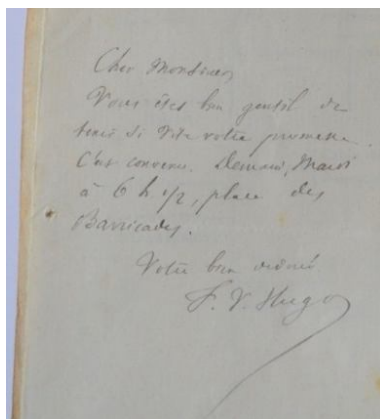 Cher Monsieur,
Vous êtes bien gentil de
tenir si vite votre promesse.
C'est convenu. Demain, Mardi
à 6 h 1/2, place des
Barricades.
Votre bien dévoué
F. V. Hugo